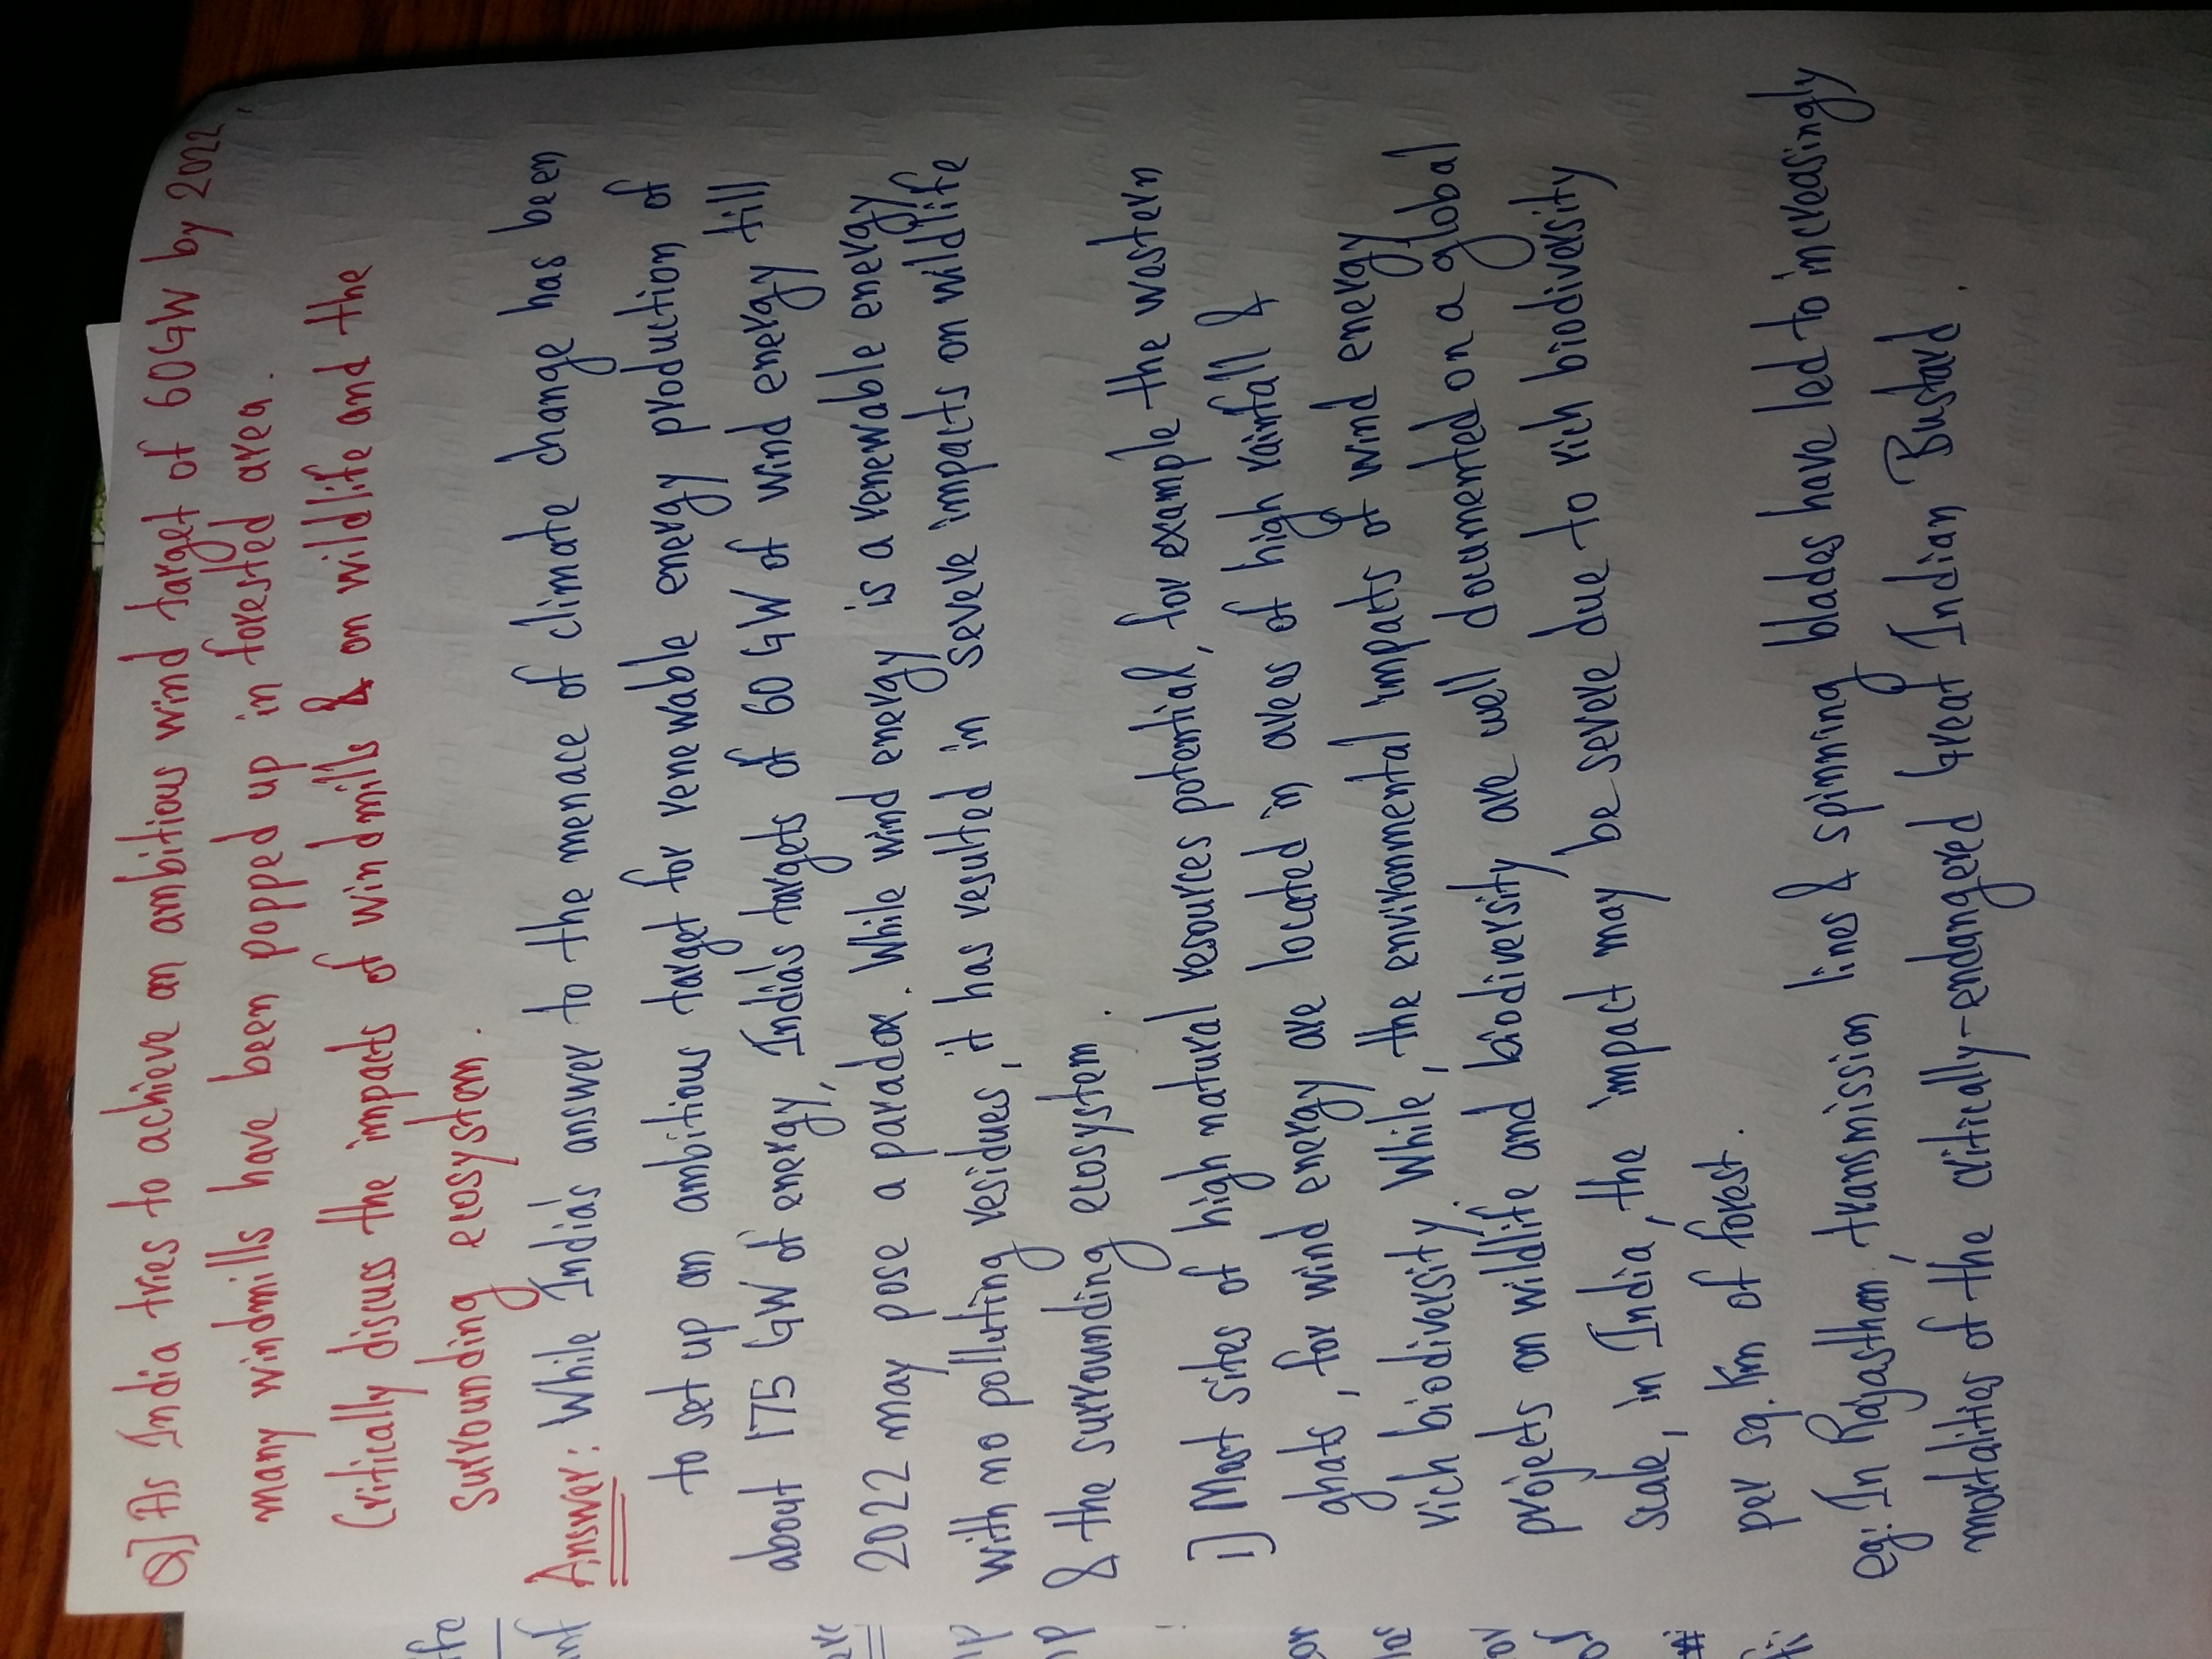 Q] As India tries to achieve an ambitious wind target of 60GW by 2022,
many windmills have been popped up in forested area.
Critically discuss the impacts of windmills & on wildlife and the
surrounding ecosystem.
Answer: While India's answer to the menace of climate change has been
to set up an ambitious target for renewable energy production of
about 175 GW of energy, India's targets of 60 GW of wind energy till
2022 may pose a paradox. While wind energy is a renewable energy
with no polluting residues, it has resulted in seveve impacts on wildlife
& the surrounding ecosystem.
1) Most sites of high natural resources potential, for example the western
ghats, for wind energy are located in areas of high rainfall &
rich biodiversity. While, the environmental impacts of wind energy
projects on wildlife and biodiversity are well documented on a global
scale, in India, the impact may be severe due to rich biodiversity
per sq. Km of forest.
eg: In Rajasthan, transmission lines & spinning blades have led to increasingly
mortalities of the critically-endangered Great Indian Bustard.